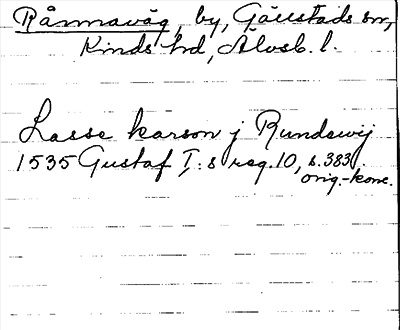 Rånnaväg, by, Gällstads sn,
Kinds hd, Älvsb. l.
Lasse karson j Rundewij
1535 Gustaf I:s reg. 10, s. 383.
orig.-konc.